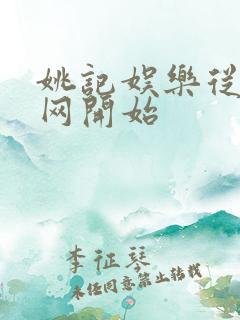 姚記娛樂從
网開始
李征琴
未经同意禁止转载